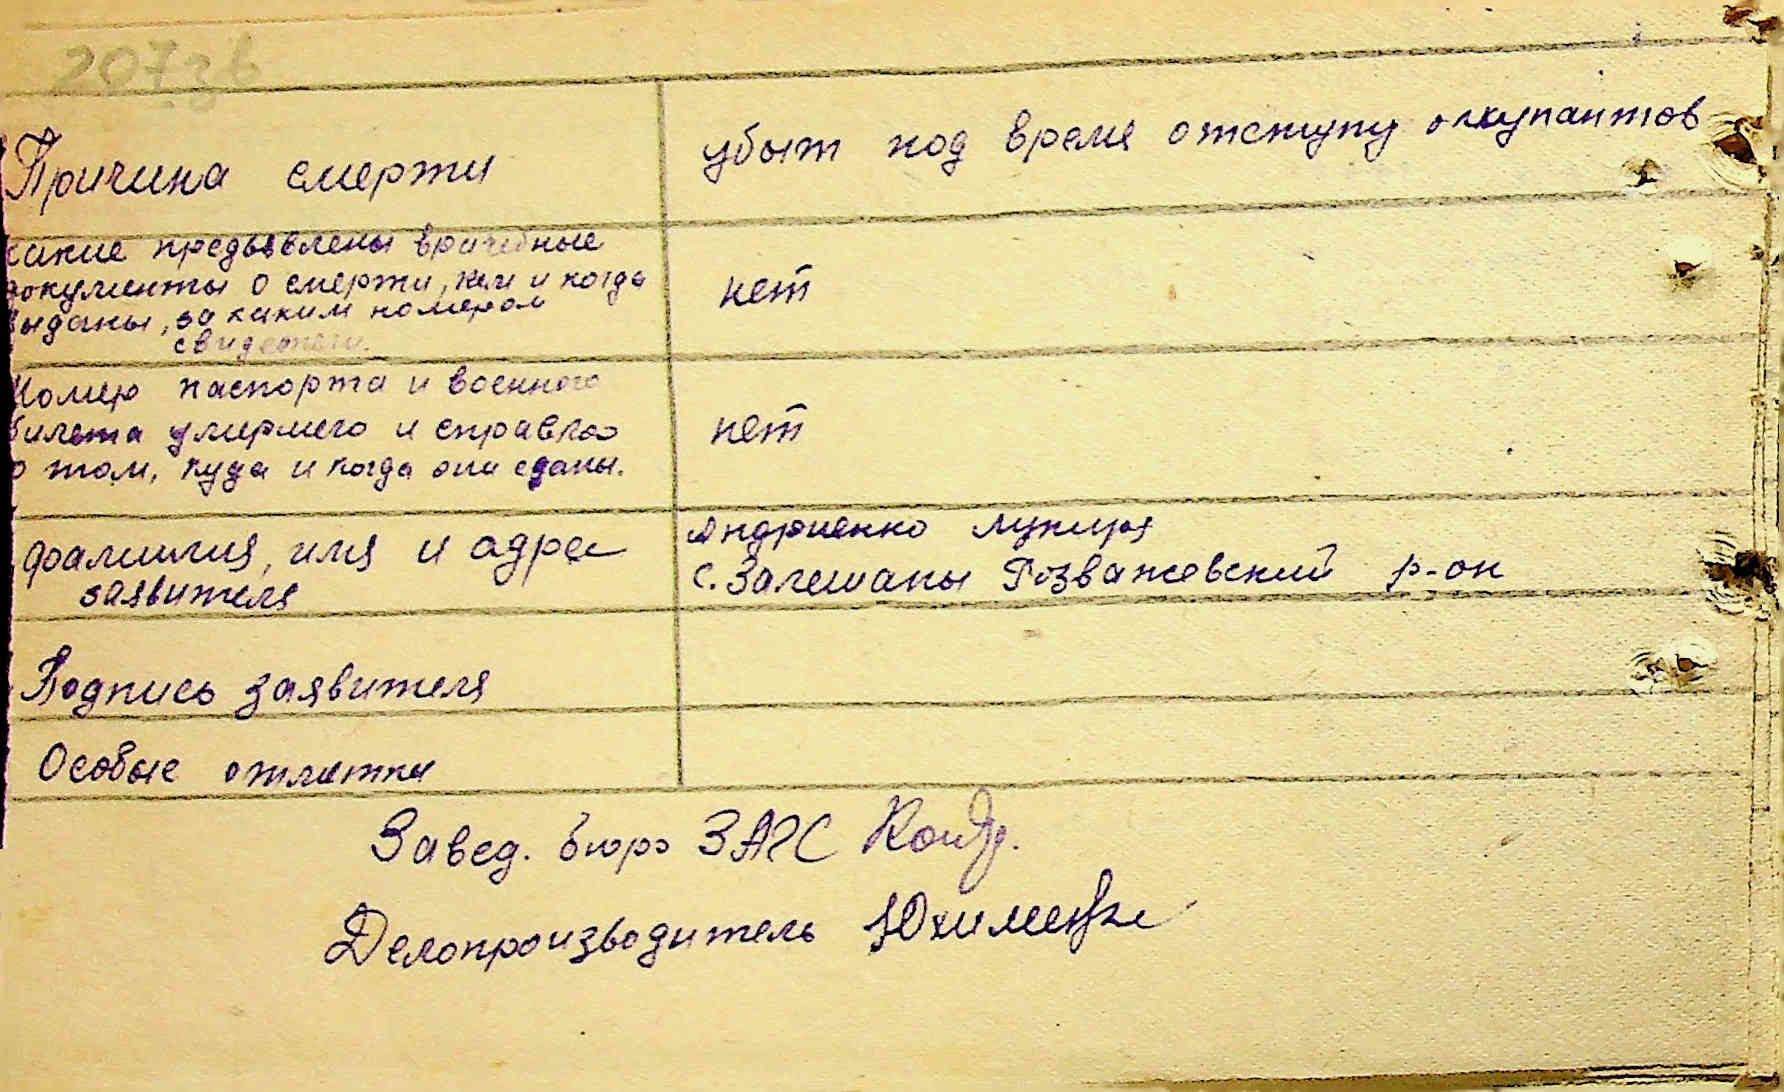 207зв
Причина смерти
убыт под время отступу оккупантов
какие предъявлены врачебные
документы о смерти, кем и когда
выданы, за каким номером
свидетели.
нет
Номер паспорта и военного
билета умершего и справка
о том, куда и когда они сданы.
нет
фамилия, имя и адрес
заявителя
Андриенко Лукиря
с. Залешаны Розважевский р-он
Подпись заявителя
Особые отметки
Завед. бюро ЗАГС
Делопроизводитель